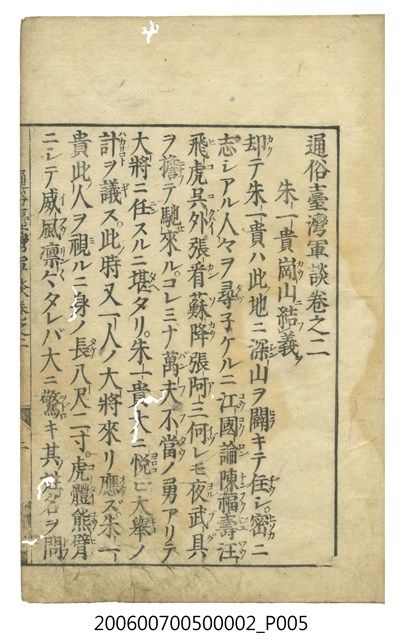 通俗臺灣軍談卷之二
朱一貴崗山結義
却テ朱一貴ハ此地ニ深山ヲ開キテ住シ。密ニ
志シアル人々ヲ尋子ケルニ江國論陳福壽汪
飛虎呉外張看蘇降張阿三何レモ夜武具
ヲ擔テ馳來ル。コレミナ萬夫不當ノ勇アリテ
大將ニ任スルニ堪タリ。朱一貴大ニ悦ビ大舉ノ
計ヲ議ス。此時又一人ノ大將來リ應ズ朱一
貴此人ヲ視ルニ身ノ長八尺二寸。虎體熊臂
ニシテ威風凛々タレバ大ニ驚キ其姓名ヲ問
200600700500002_P005